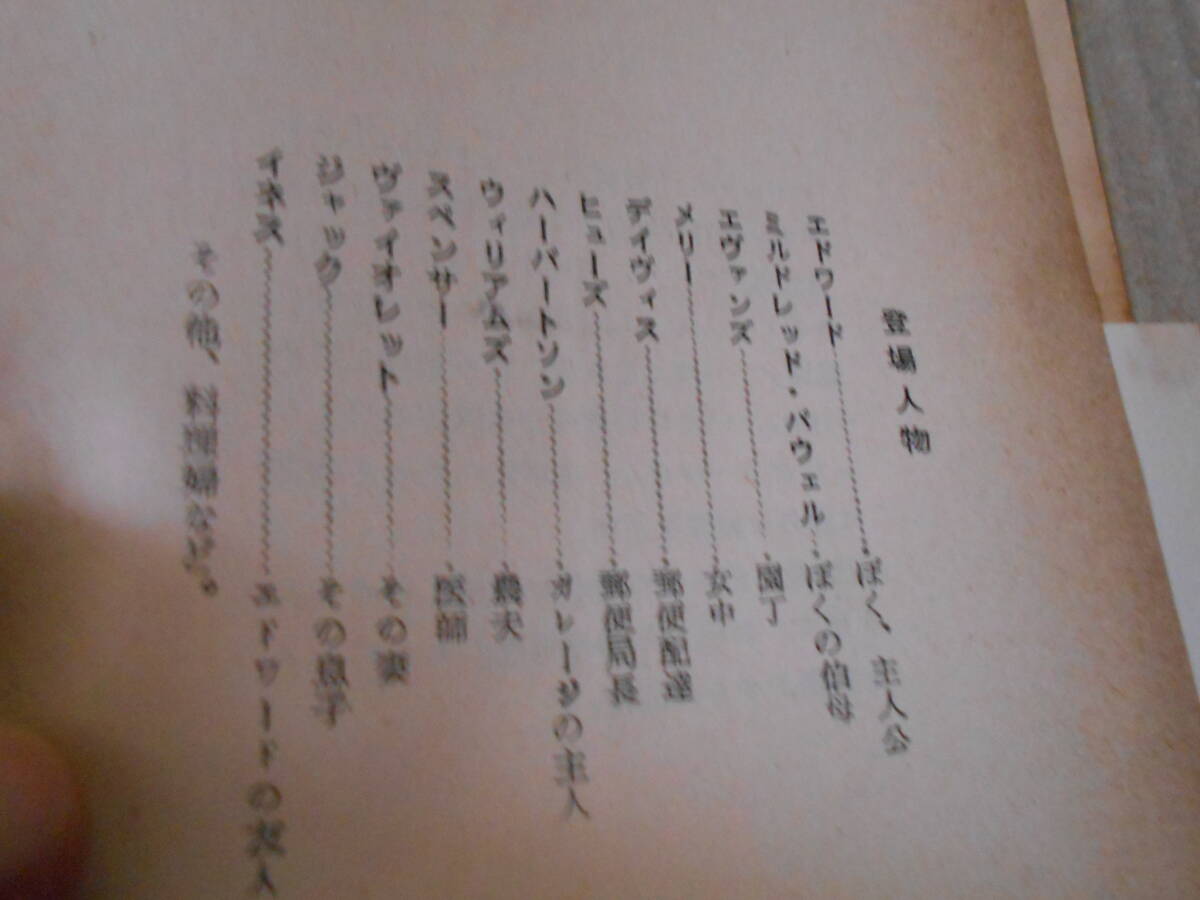 登場人物
エドワード……ぼく、主人公
ミルドレッド・パウェル…ぼくの伯母
エヴァンズ……園丁
メリー……女中
デイヴィス……郵便配達
ヒューズ……郵便局長
ハーバートソン……ガレージの主人
ウィリアムズ……農夫
スペンサー……医師
ヴァイオレット……その妻
ジャック……その息子
イネス……エドワードの友人
その他、料理婦など。